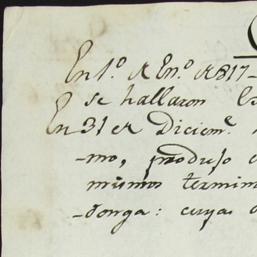 En 1.º de En.º de 817-
se hallaron
En 31 de Diciem.e
-mo, produjo
mismos termin
-donga: cuyas